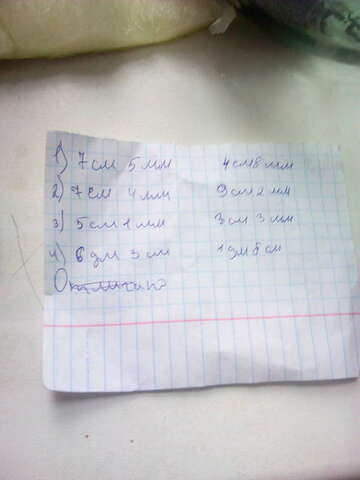 1) 7см 5мм 4см8мм
2) 7см 4мм 9см2мм
3) 5см1мм 3см 3мм
4) 6дм 3см 1дм8см